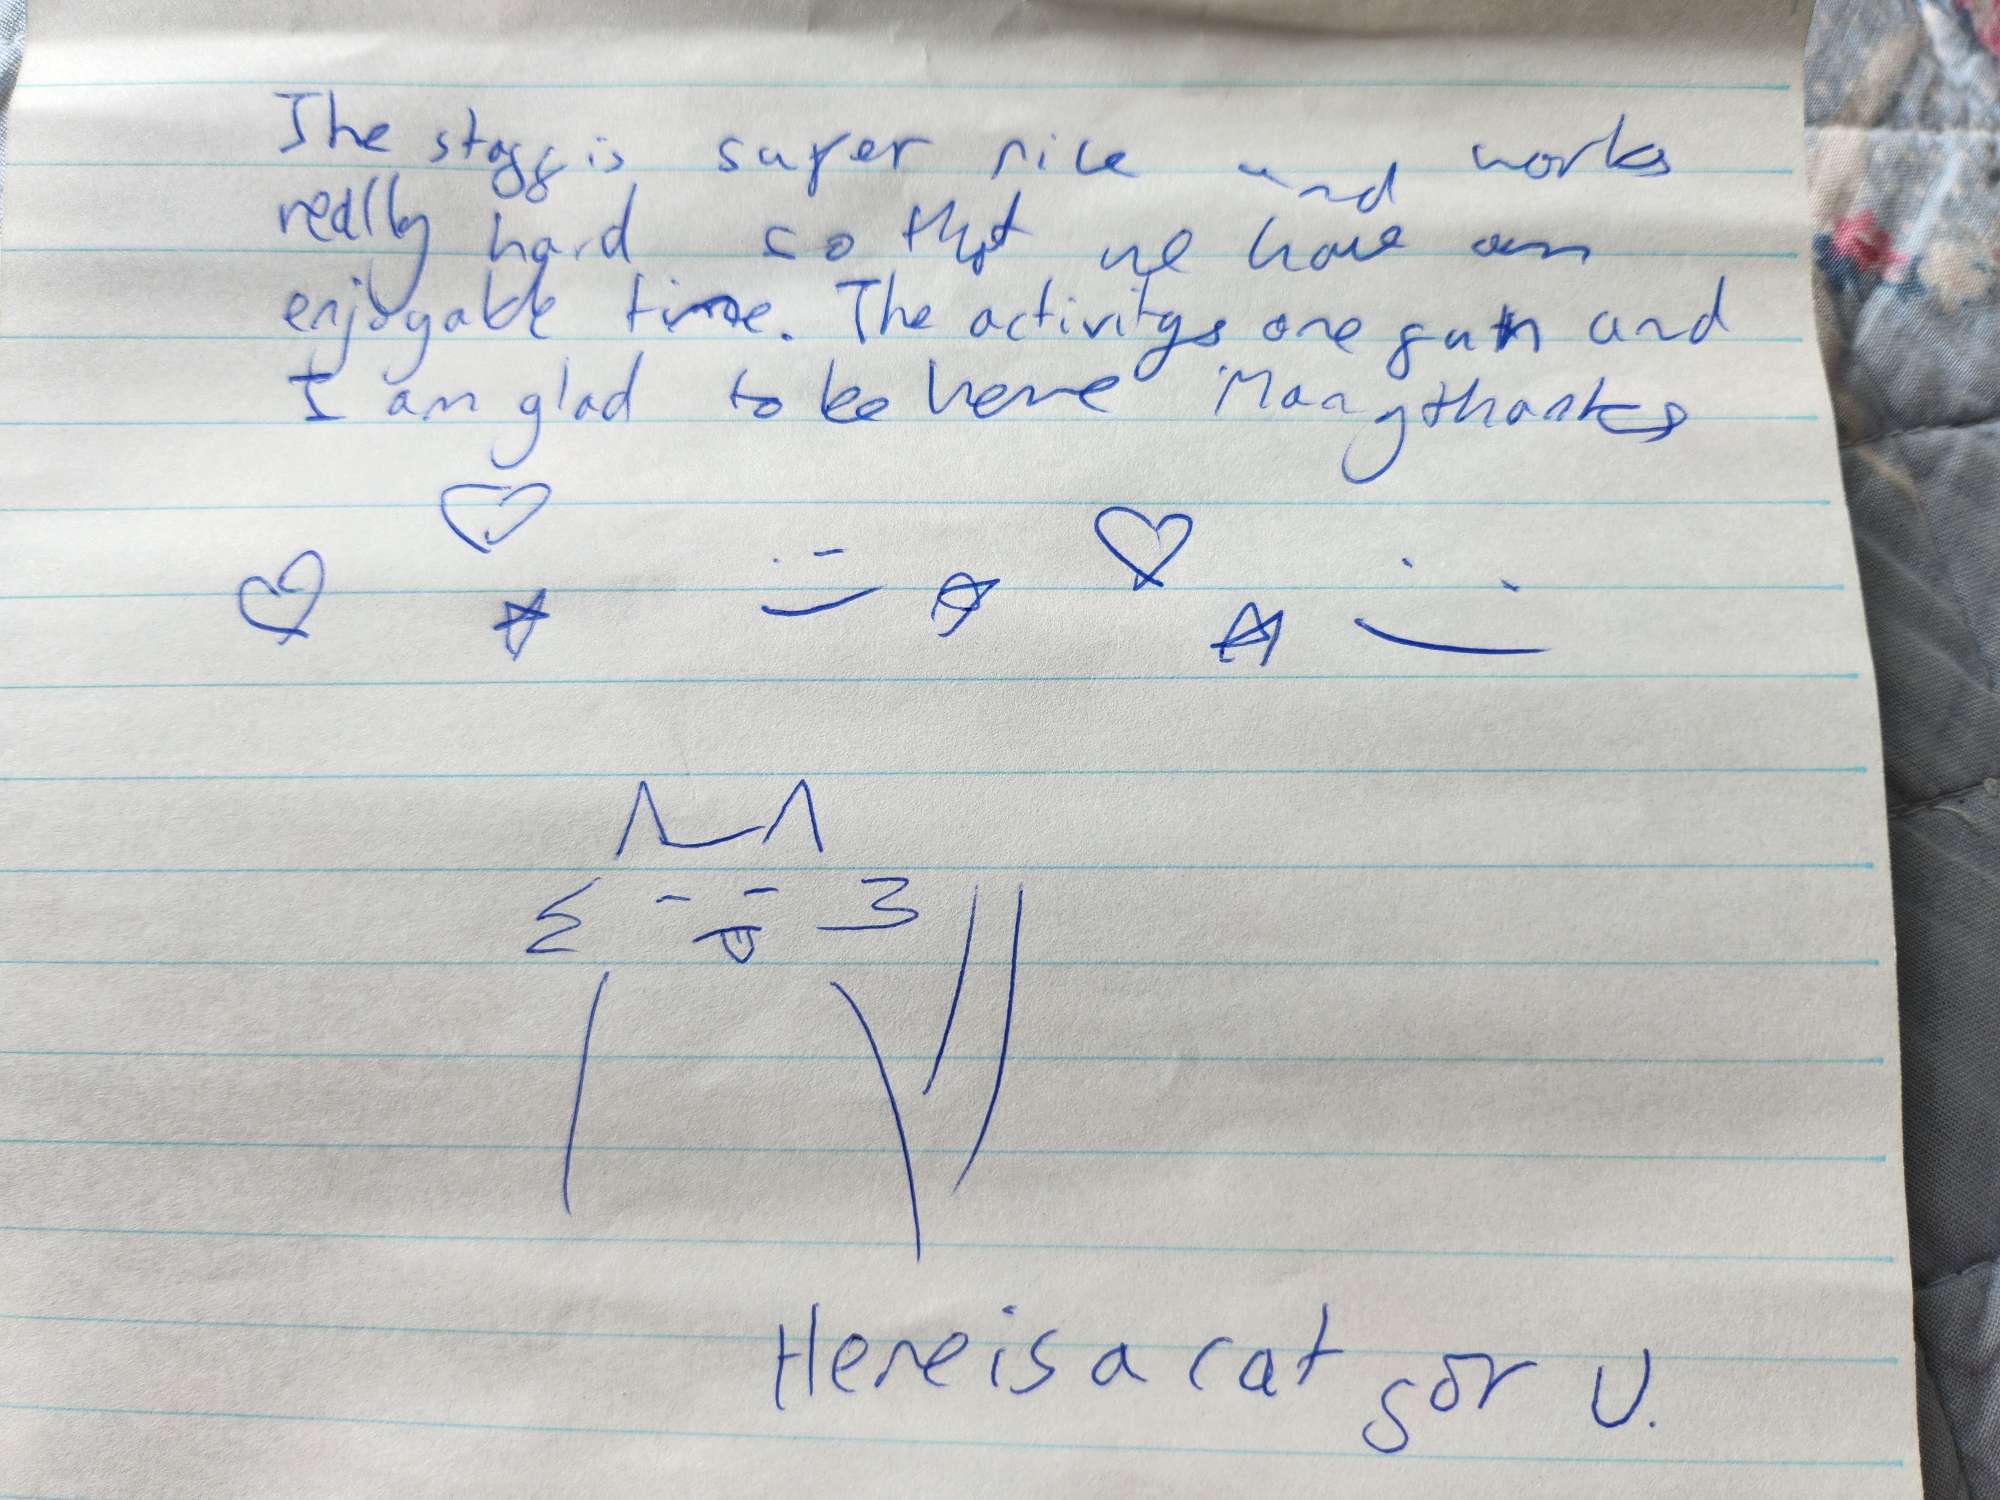 The staff is super nice and works
really hard so that we have an
enjoyable time. The activitys are fun and
I am glad to be here Many thanks
Here is a cat for U.